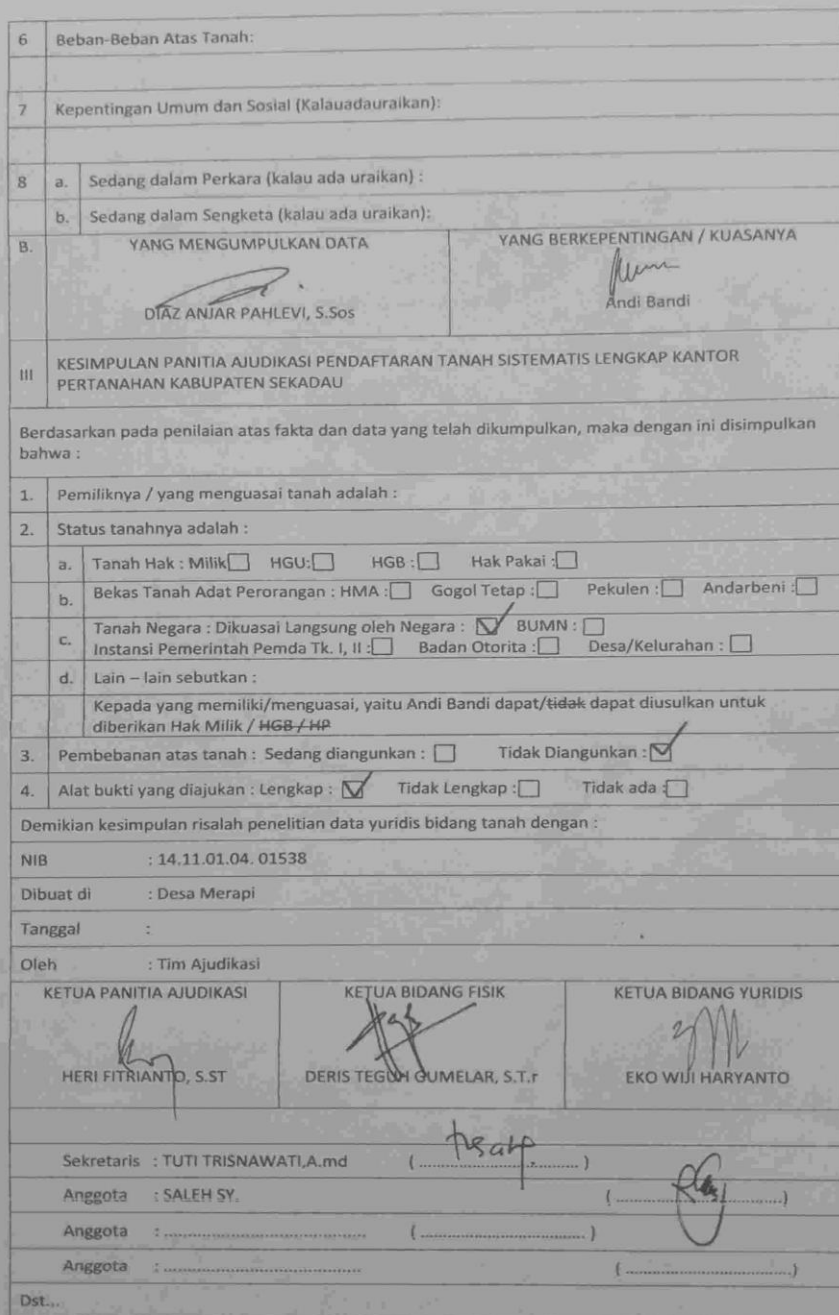 6 Beban-Beban Atas Tanah:
7 Kepentingan Umum dan Sosial (Kalauadauraikan):
8 a. Sedang dalam Perkara (kalau ada uraikan) :
b. Sedang dalam Sengketa (kalau ada uraikan):
B. YANG MENGUMPULKAN DATA YANG BERKEPENTINGAN / KUASANYA
DIAZ ANJAR PAHLEVI, S.Sos Andi Bandi
III KESIMPULAN PANITIA AJUDIKASI PENDAFTARAN TANAH SISTEMATIS LENGKAP KANTOR
PERTANAHAN KABUPATEN SEKADAU
Berdasarkan pada penilaian atas fakta dan data yang telah dikumpulkan, maka dengan ini disimpulkan
bahwa :
1. Pemiliknya / yang menguasai tanah adalah :
2. Status tanahnya adalah :
a. Tanah Hak : Milik☐ HGU:☐ HGB :☐ Hak Pakai :☐
b. Bekas Tanah Adat Perorangan : HMA :☐ Gogol Tetap :☐ Pekulen :☐ Andarbeni :☐
c. Tanah Negara : Dikuasai Langsung oleh Negara : ☑ BUMN : ☐
Instansi Pemerintah Pemda Tk. I, II :☐ Badan Otorita :☐ Desa/Kelurahan : ☐
d. Lain – lain sebutkan :
Kepada yang memiliki/menguasai, yaitu Andi Bandi dapat/tidak dapat diusulkan untuk
diberikan Hak Milik / HGB / HP
3. Pembebanan atas tanah : Sedang diangunkan : ☐ Tidak Diangunkan :☑
4. Alat bukti yang diajukan : Lengkap : ☑ Tidak Lengkap :☐ Tidak ada :☐
Demikian kesimpulan risalah penelitian data yuridis bidang tanah dengan :
NIB : 14.11.01.04. 01538
Dibuat di : Desa Merapi
Tanggal :
Oleh : Tim Ajudikasi
KETUA PANITIA AJUDIKASI KETUA BIDANG FISIK KETUA BIDANG YURIDIS
HERI FITRIANTO, S.ST DERIS TEGUH GUMELAR, S.T.r EKO WIJI HARYANTO
Sekretaris : TUTI TRISNAWATI,A.md (..............................)
Anggota : SALEH SY. (..............................)
Anggota : .................................... (..............................)
Anggota : .................................... (..............................)
Dst...